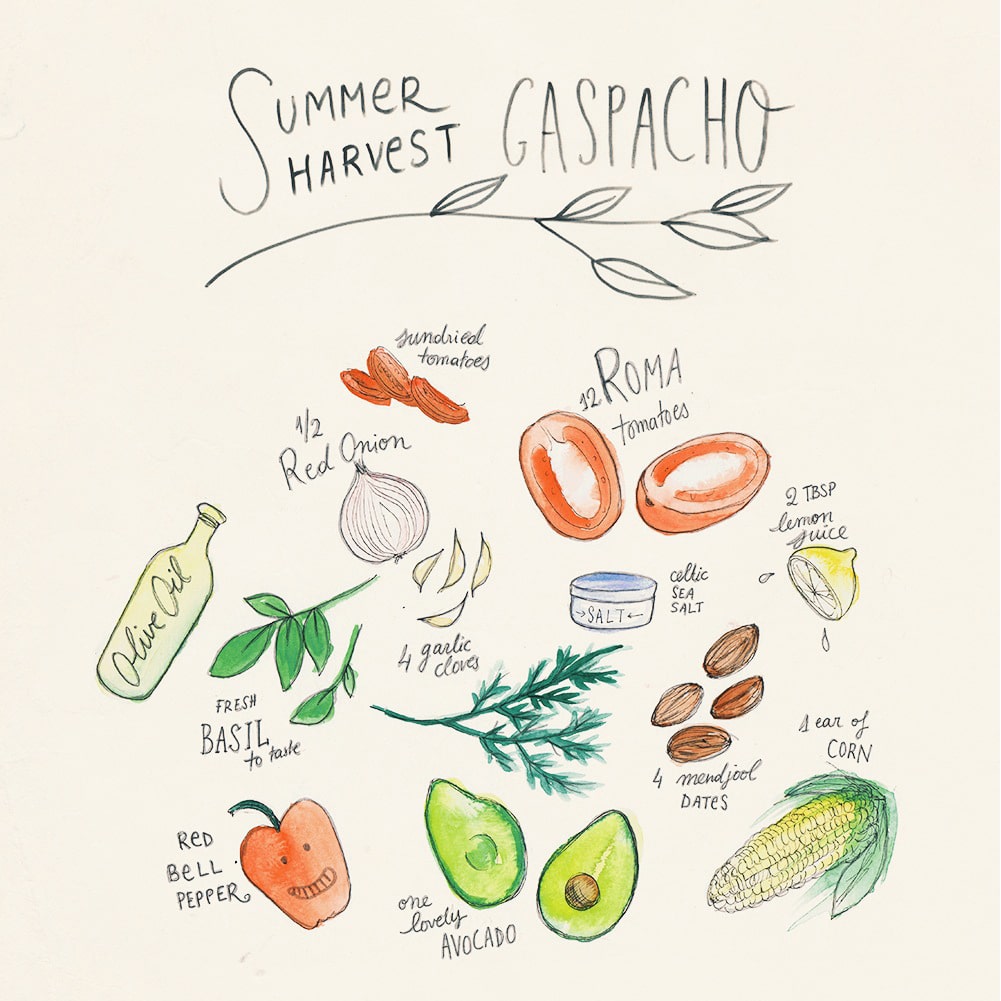 SUMMER
HARVEST
GASPACHO
sundried
tomatoes
12 ROMA
tomatoes
1/2
Red Onion
2 TBSP
lemon
juice
Olive Oil
celtic
SEA
SALT
→SALT←
4 garlic
cloves
FRESH
BASIL
to taste
4 mendjool
DATES
1 ear of
CORN
RED
BELL
PEPPER
one
lovely
AVOCADO